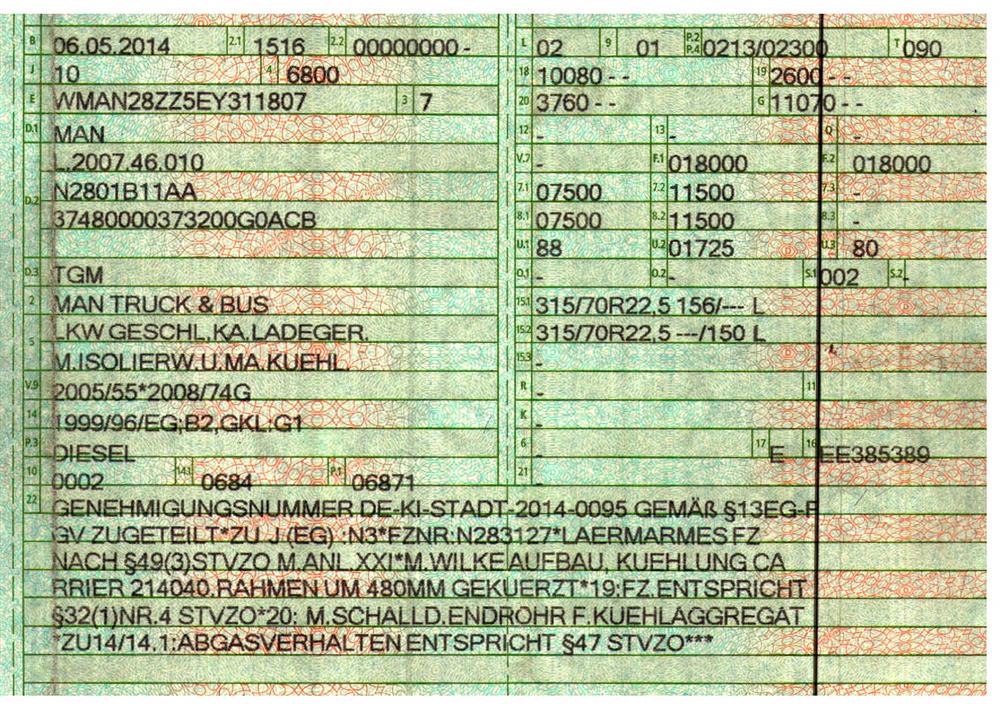 B 06.05.2014 2.1 1516 2.2 00000000 - L 02 9 01 P.2 P.4 0213/02300 T 090
J 10 4 6800 18 10080 - - 19 2600 - -
E WMAN28ZZ5EY311807 3 7 20 3760 - - G 11070 - -
D.1 MAN 12 - 13 - Q -
L.2007.46.010 V.7 - F.1 018000 F.2 018000
D.2 N2801B11AA 7.1 07500 7.2 11500 7.3 -
37480000373200G0ACB 8.1 07500 8.2 11500 8.3 -
U.1 88 U.2 01725 U.3 80
D.3 TGM O.1 - O.2 - S.1 002 S.2 -
2 MAN TRUCK & BUS 15.1 315/70R22,5 156/--- L
5 LKW GESCHL.KA.LADEGER. 15.2 315/70R22,5 ---/150 L
M.ISOLIERW.U.MA.KUEHL. 15.3 -
V.9 2005/55*2008/74G R - 11
14 1999/96/EG;B2,GKL:G1 K -
P.3 DIESEL 6 - 17 E 16 EE385389
10 0002 14.1 0684 P.1 06871 21
22 GENEHMIGUNGSNUMMER DE-KI-STADT-2014-0095 GEMÄß §13EG-F
GV ZUGETEILT*ZU J (EG) :N3*FZNR:N283127*LAERMARMES FZ
NACH §49(3)STVZO M.ANL.XXI*M.WILKE AUFBAU, KUEHLUNG CA
RRIER 214040.RAHMEN UM 480MM GEKUERZT*19:FZ.ENTSPRICHT
§32(1)NR.4 STVZO*20: M.SCHALLD.ENDROHR F.KUEHLAGGREGAT
*ZU14/14.1:ABGASVERHALTEN ENTSPRICHT §47 STVZO***